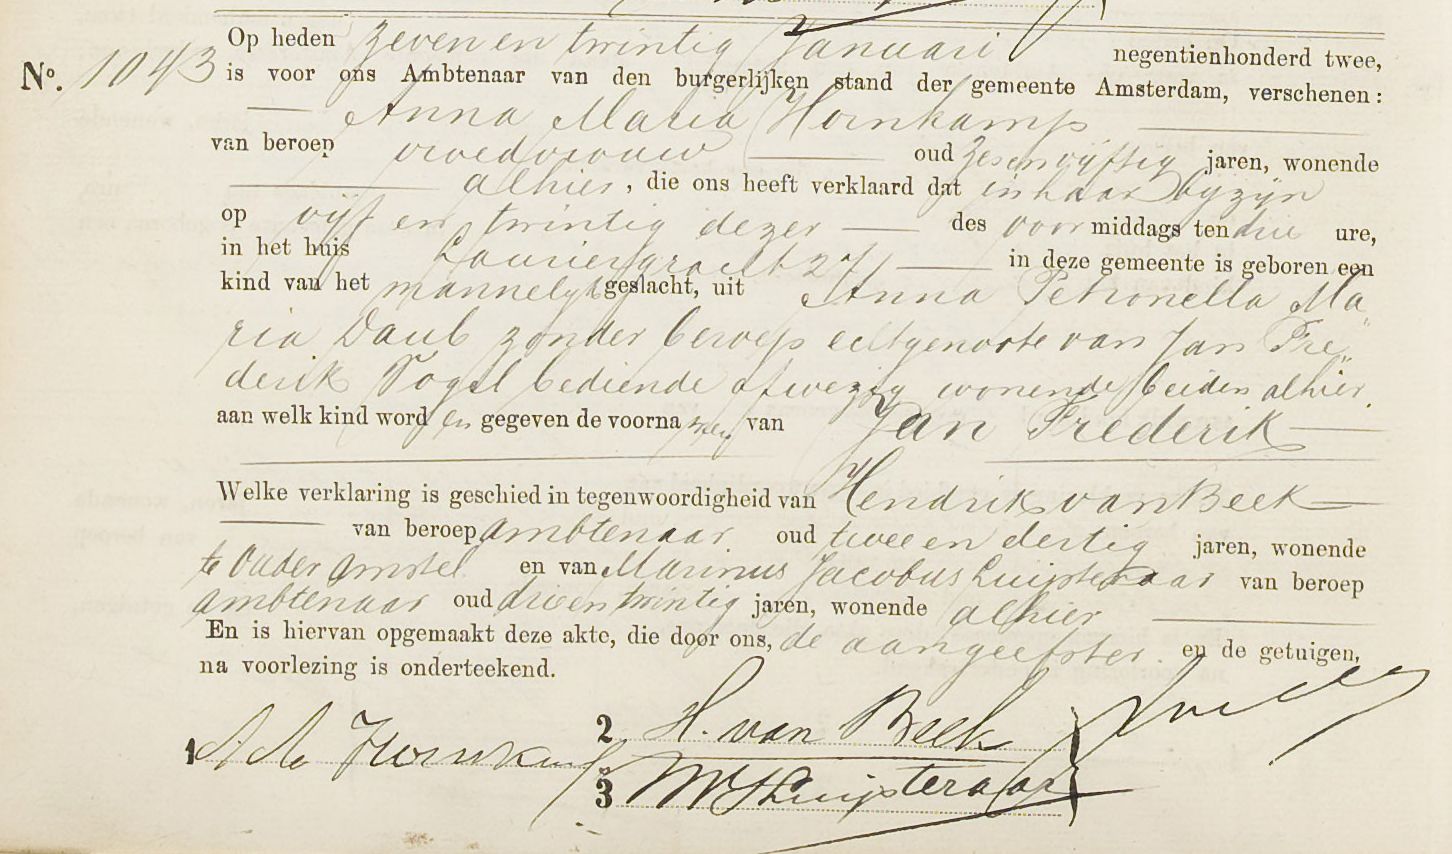 Nº. 1043
Op heden zeven en twintig Januari negentienhonderd twee,
is voor ons Ambtenaar van den burgerlijken stand der gemeente Amsterdam, verschenen:
Anna Maria Hornkamp
van beroep vroedvrouw oud zesenvijftig jaren, wonende
alhier, die ons heeft verklaard dat in haar bijzijn
op vijf en twintig dezer des voormiddags ten drie ure,
in het huis Lauriergracht 27 in deze gemeente is geboren een
kind van het mannelijk geslacht, uit Anna Petronella Ma
ria Daub zonder beroep echtgenoote van Jan Fre
derik Vogel bediende afwezig wonende beiden alhier.
aan welk kind worden gegeven de voornamen van Jan Frederik
Welke verklaring is geschied in tegenwoordigheid van Hendrik van Beek
van beroep ambtenaar oud twee en dertig jaren, wonende
te Ouder Amstel en van Marinus Jacobus Luijsteraar van beroep
ambtenaar oud drieentwintig jaren, wonende alhier
En is hiervan opgemaakt deze akte, die door ons, de aangeefster en de getuigen,
na voorlezing is onderteekend.
1 A M Hornkamp
2 H. van Beek
3 MJ Luijsteraar